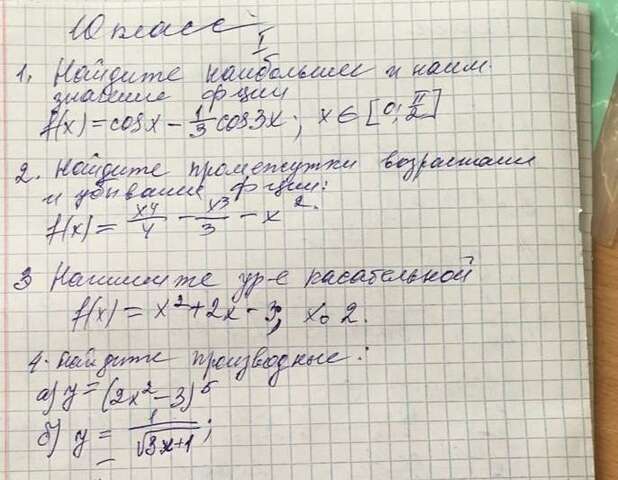 10 класс
I
1. Найдите наибольшее и наим.
значение ф-ции
f(x) = cosx - 1/3 cos3x; x ∈ [0; π/2]
2. Найдите промежутки возрастания
и убывания ф-ции:
f(x) = x⁴/4 - x³/3 - x².
3 Напишите ур-е касательной
f(x) = x² + 2x - 3; x₀ 2.
4. Найдите производные:
а) y = (2x² - 3)⁵
б) y = 1/√3x+1;